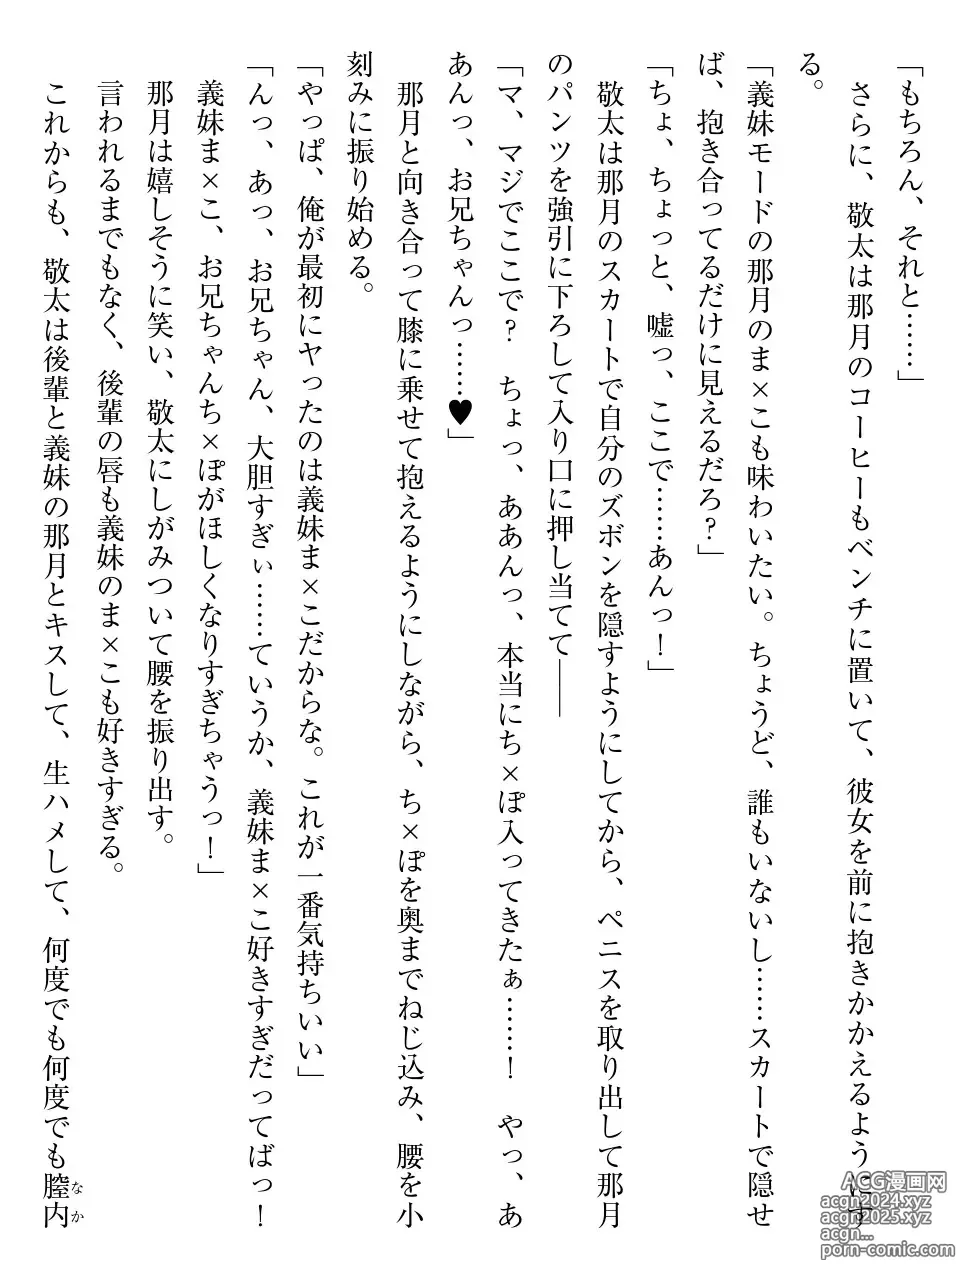 「もちろん、それと……」
さらに、敬太は那月のコーヒーもベンチに置いて、彼女を前に抱きかかえるようにす
る。
「義妹モードの那月のま×こも味わいたい。ちょうど、誰もいないし……スカートで隠せ
ば、抱き合ってるだけに見えるだろ?」
「ちょ、ちょっと、嘘っ、ここで……あんっ!」
敬太は那月のスカートで自分のズボンを隠すようにしてから、ペニスを取り出して那月
のパンツを強引に下ろして入り口に押し当てて――
「マ、マジでここで? ちょっ、ああんっ、本当にち×ぽ入ってきたぁ……! やっ、あ
あんっ、お兄ちゃんっ……♥」
那月と向き合って膝に乗せて抱えるようにしながら、ち×ぽを奥までねじ込み、腰を小
刻みに振り始める。
「やっぱ、俺が最初にヤったのは義妹ま×こだからな。これが一番気持ちいい」
「んっ、あっ、お兄ちゃん、大胆すぎぃ……ていうか、義妹ま×こ好きすぎだってばっ!
義妹ま×こ、お兄ちゃんち×ぽがほしくなりすぎちゃうっ!」
那月は嬉しそうに笑い、敬太にしがみついて腰を振り出す。
言われるまでもなく、後輩の唇も義妹のま×こも好きすぎる。
これからも、敬太は後輩と義妹の那月とキスして、生ハメして、何度でも何度でも膣内
なか
ACG漫画网
acgn2024.xyz
acgn2025.xyz
acgn...
porn-comic.com